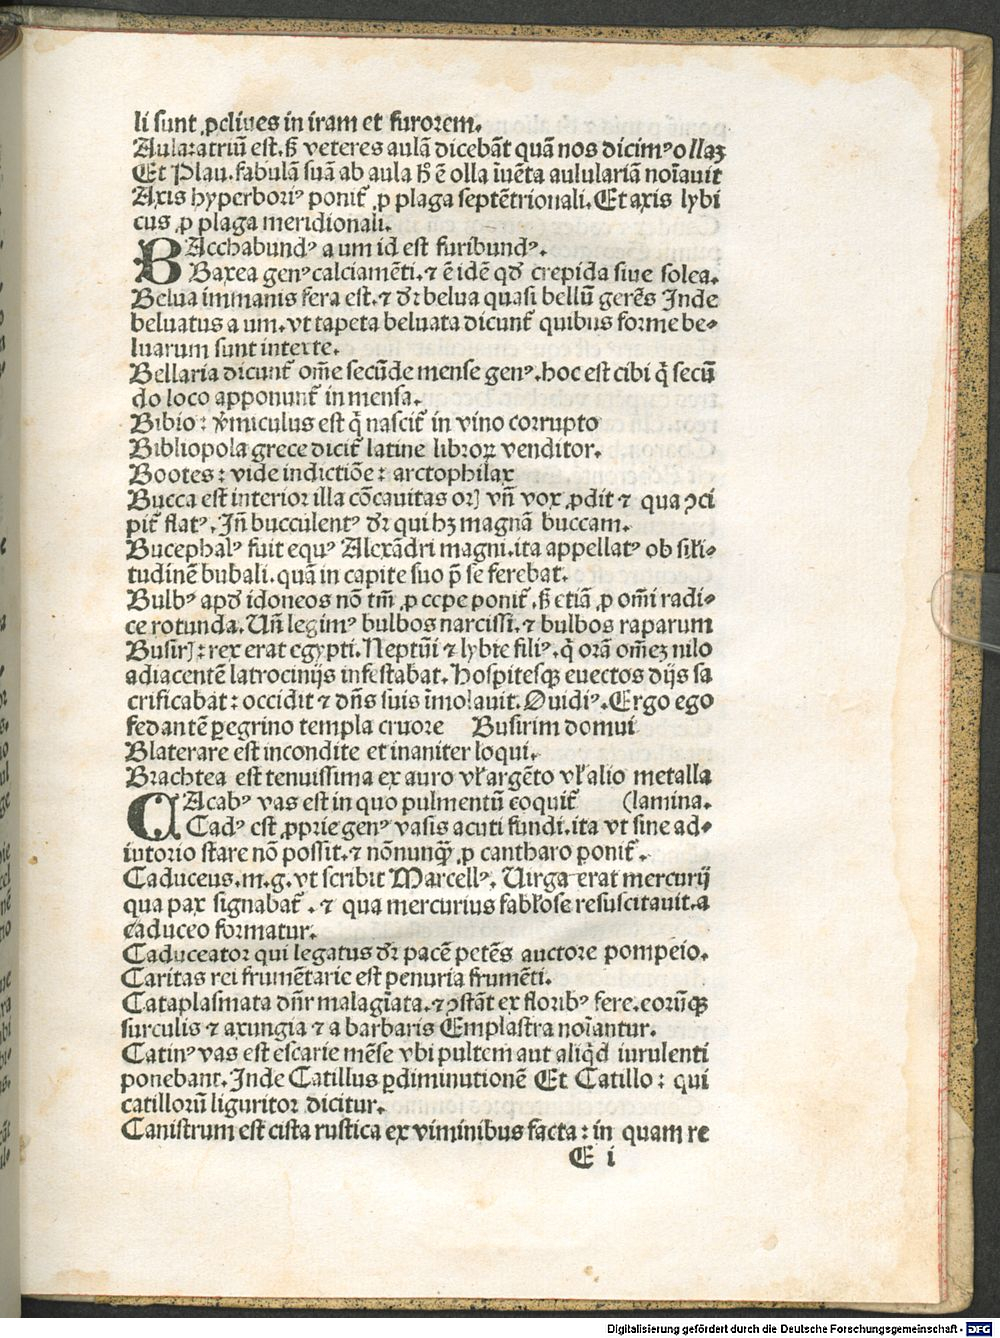 li sunt ꝓcliues in iram et furorem.
Aula:atriū est.ß veteres aulā dicebāt quā nos dicimꝰ ollaꝫ
Et Plau.fabulā suā ab aula ħ ē olla iuēta aululariā noīauit
Axis hyperboriꝰ ponit᷑ ꝓ plaga septētrionali.Et axis lybi
cus ꝓ plaga meridionali.
BAcchabundꝰ a um id est furibundꝰ.
Baxea genꝰ calciamēti.⁊ ē idē qđ crepida siue solea.
Belua immanis fera est.⁊ dr̄ belua quasi bellū gerēs Inde
beluatus a um.vt tapeta beluata dicunt᷑ quibus forme be⸗
luarum sunt interte.
Bellaria dicunt᷑ om̄e secūde mense genꝰ.hoc est cibi q̄ secū
do loco apponunt᷑ in mensa.
Bibio: v̓miculus est q̄ nascit᷑ in vino corrupto
Bibliopola grece dicit᷑ latine libroꝝ venditor.
Bootes: vide indictiōe: arctophilax
Bucca est interior illa cōcauitas orꝭ vn̄ vox ꝓdit ⁊ qua ꝯci
pit᷑ flatꝰ.In̄ bucculentꝰ dr̄ qui hꝫ magnā buccam.
Bucephalꝰ fuit equꝰ Alexādri magni.ita appellatꝰ ob sil̄i⸗
tudinē bubali.quā in capite suo p̄ se ferebat.
Bulbꝰ apđ idoneos nō tm̄ ꝓ cepe ponit᷑.ß etiā ꝓ om̄i radi⸗
ce rotunda.Un̄ legimꝰ bulbos narcissi.⁊ bulbos raparum
Busirꝭ: rex erat egypti.Neptūi ⁊ lybie filiꝰ.q̄ orā om̄eꝫ nilo
adiacentē latrocinijs infestabat.hospitesqꝫ euectos dijs sa
crificabat: occidit ⁊ dn̄s suis īmolauit.Ouidiꝰ.Ergo ego
fedantē ꝑegrino templa cruore Busirim domui
Blaterare est incondite et inaniter loqui.
Brachtea est tenuissima ex auro vl̄ argēto vl̄ alio metalla
CAcabꝰ vas est in quo pulmentū coquit᷑ (lamina.
Cadꝰ est ꝓprie genꝰ vasis acuti fundi.ita vt sine ad⸗
iutorio stare nō possit.⁊ nōnunqꝫ̄ ꝓ cantharo ponit᷑.
Caduceus.m.g.vt scribit Marcellꝰ.Uirga erat mercurij
qua pax signabat᷑.⁊ qua mercurius fabl̄ose resuscitauit.a
caduceo formatur.
Caduceator qui legatus dr̄ pacē petēs auctore pompeio.
Caritas rei frumētarie est penuria frumēti.
Cataplasmata dn̄r malagm̄ata.⁊ ꝯstāt ex floribꝰ fere.eorūqꝫ
surculis ⁊ axungia ⁊ a barbaris Emplastra noīantur.
Catinꝰ vas est escarie mēse vbi pultem aut aliq̄d iurulenti
ponebant.Inde Catillus ꝑdiminutionē Et Catillo: qui
catillorū liguritor dicitur.
Canistrum est cista rustica ex viminibus facta: in quam re
E i
Digitalisierung gefördert durch die Deutsche Forschungsgemeinschaft - DFG